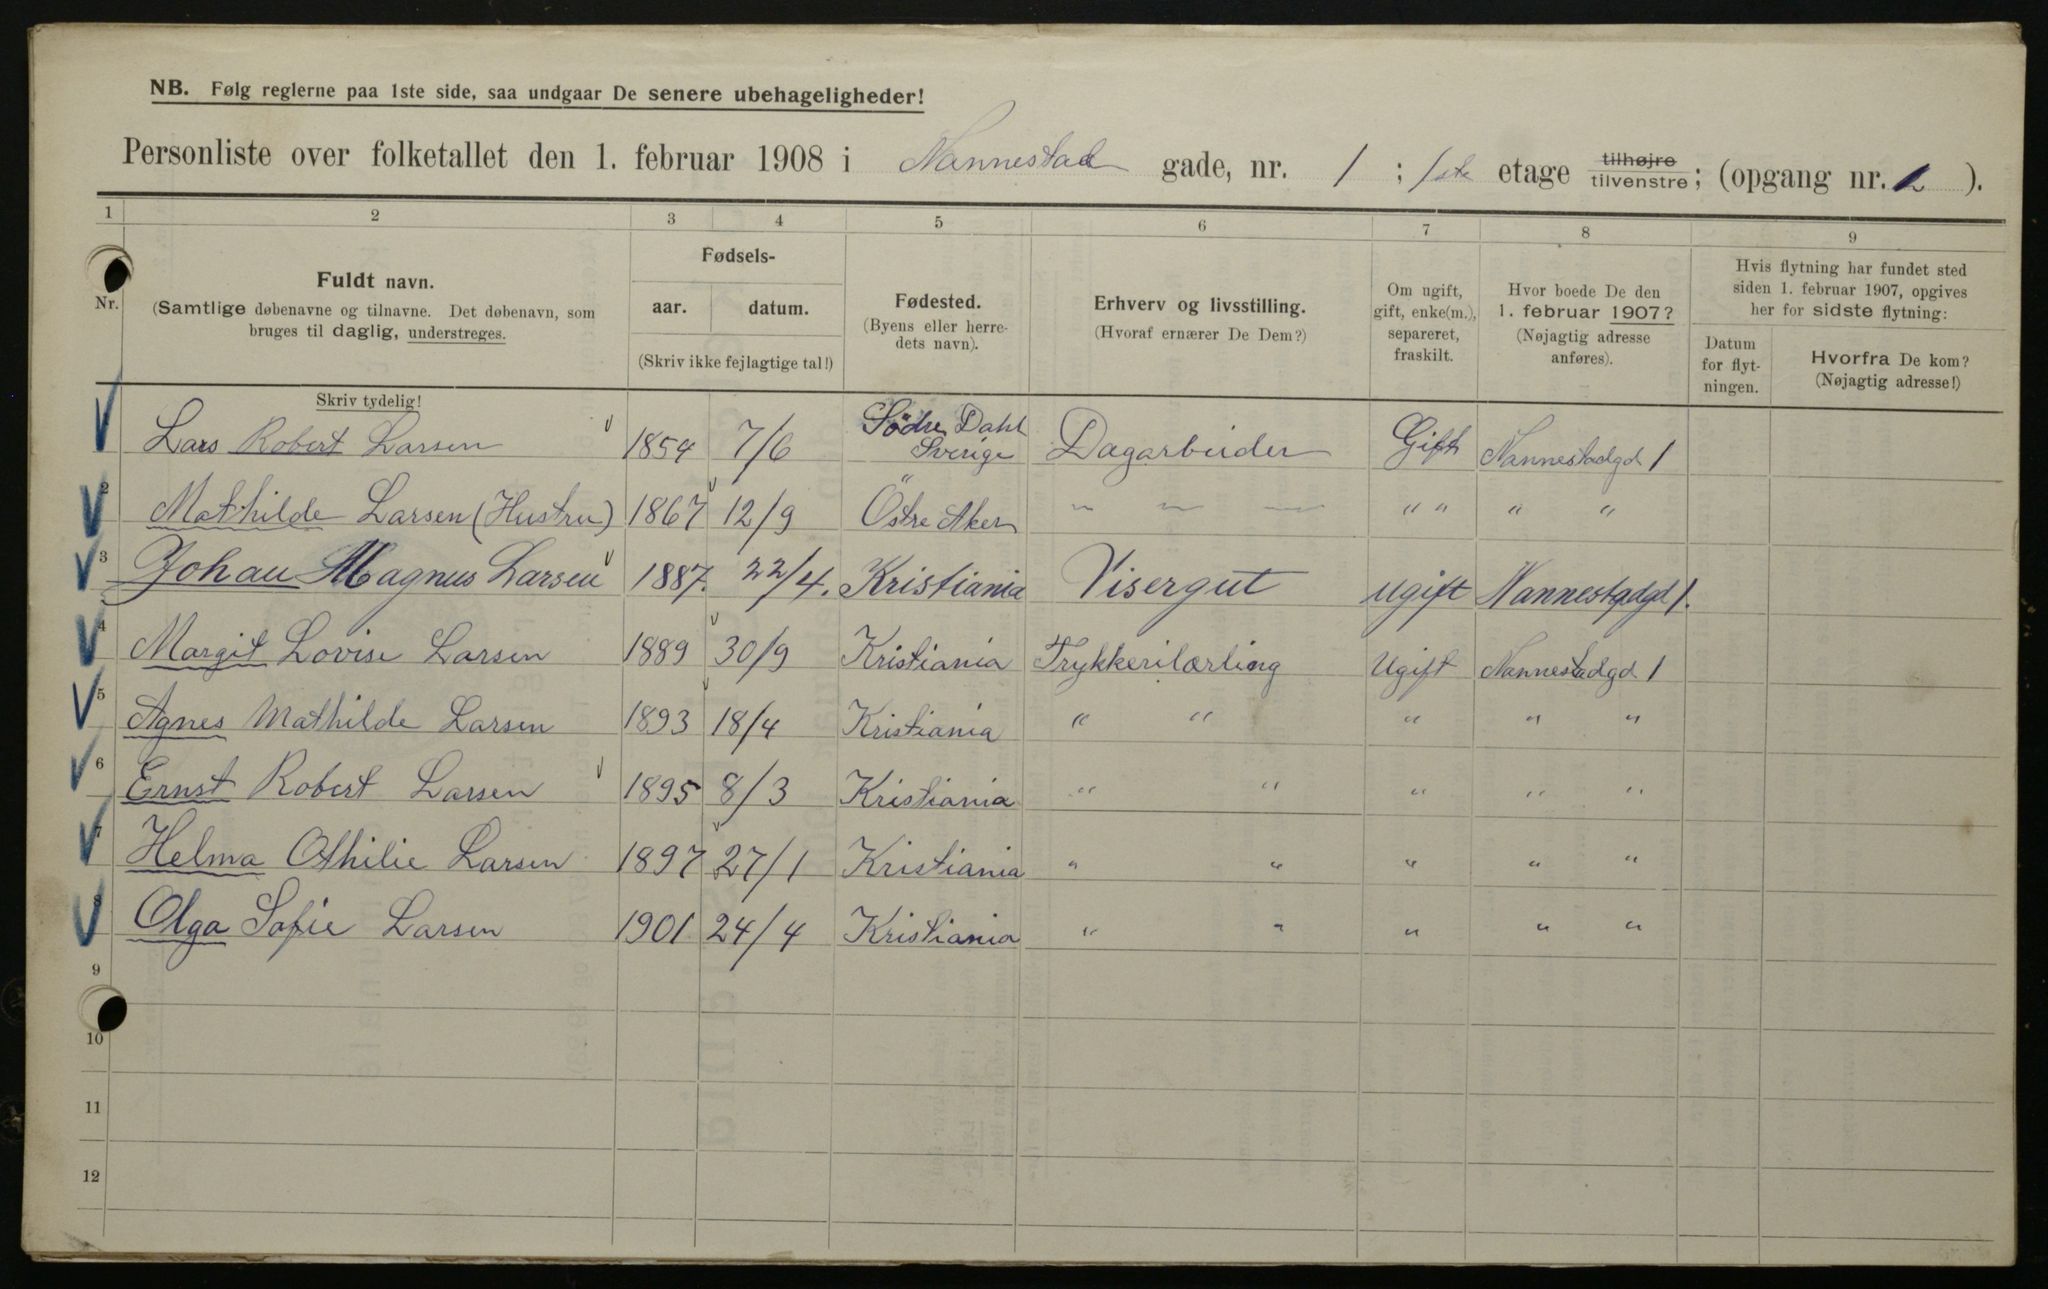 NB. Følg reglerne paa 1ste side, saa undgaar De senere ubehageligheder!
Personliste over folketallet den 1. februar 1908 i Nannestad gade, nr. 1 ; 1ste etage tilhøjre tilvenstre; (opgang nr. 2 ).
1 2 3 4 5 6 7 8 9
Nr.
Fuldt navn.
(Samtlige døbenavne og tilnavne. Det døbenavn, som
bruges til daglig, understreges.
Skriv tydelig!
Fødsels-
aar. datum.
(Skriv ikke fejlagtige tal!)
Fødested.
(Byens eller herre-
dets navn).
Erhverv og livsstilling.
(Hvoraf ernærer De Dem?)
Om ugift,
gift, enke(m.),
separeret,
fraskilt.
Hvor boede De den
1. februar 1907?
(Nøjagtig adresse
anføres).
Hvis flytning har fundet sted
siden 1. februar 1907, opgives
her for sidste flytning:
Datum
for flyt-
ningen.
Hvorfra De kom?
(Nøjagtig adresse!)
Lars Robert Larsen 1854 7/6 Södre Dahl Sverige Dagarbeider Gift Nannestadgd 1
2 Mathilde Larsen (Hustru) 1867 12/9 Östre Aker " " " " " " "
3 Johan Magnus Larsen 1887. 22/4. Kristiania Visergut ugift Nannestadgd 1.
4 Margit Lovise Larsen 1889 30/9 Kristiania Trykkerilærling Ugift Nannestadgd 1
5 Agnes Mathilde Larsen 1893 18/4 Kristiania " " " " "
6 Ernst Robert Larsen 1895 8/3 Kristiania " " " " "
7 Helma Othilie Larsen 1897 27/1 Kristiania " " " " "
8 Olga Sofie Larsen 1901 24/4 Kristiania " " " " "
9
10
11
12